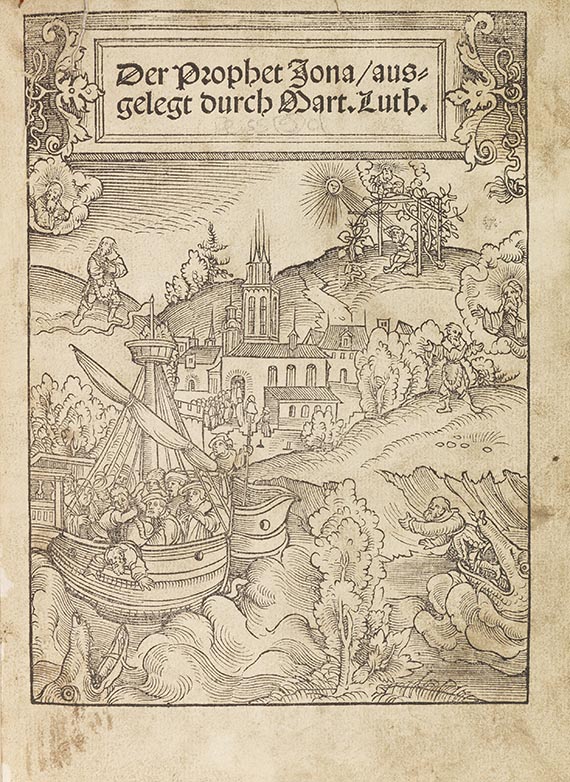 Der Prophet Jona/aus-
gelegt durch Mart. Luth.